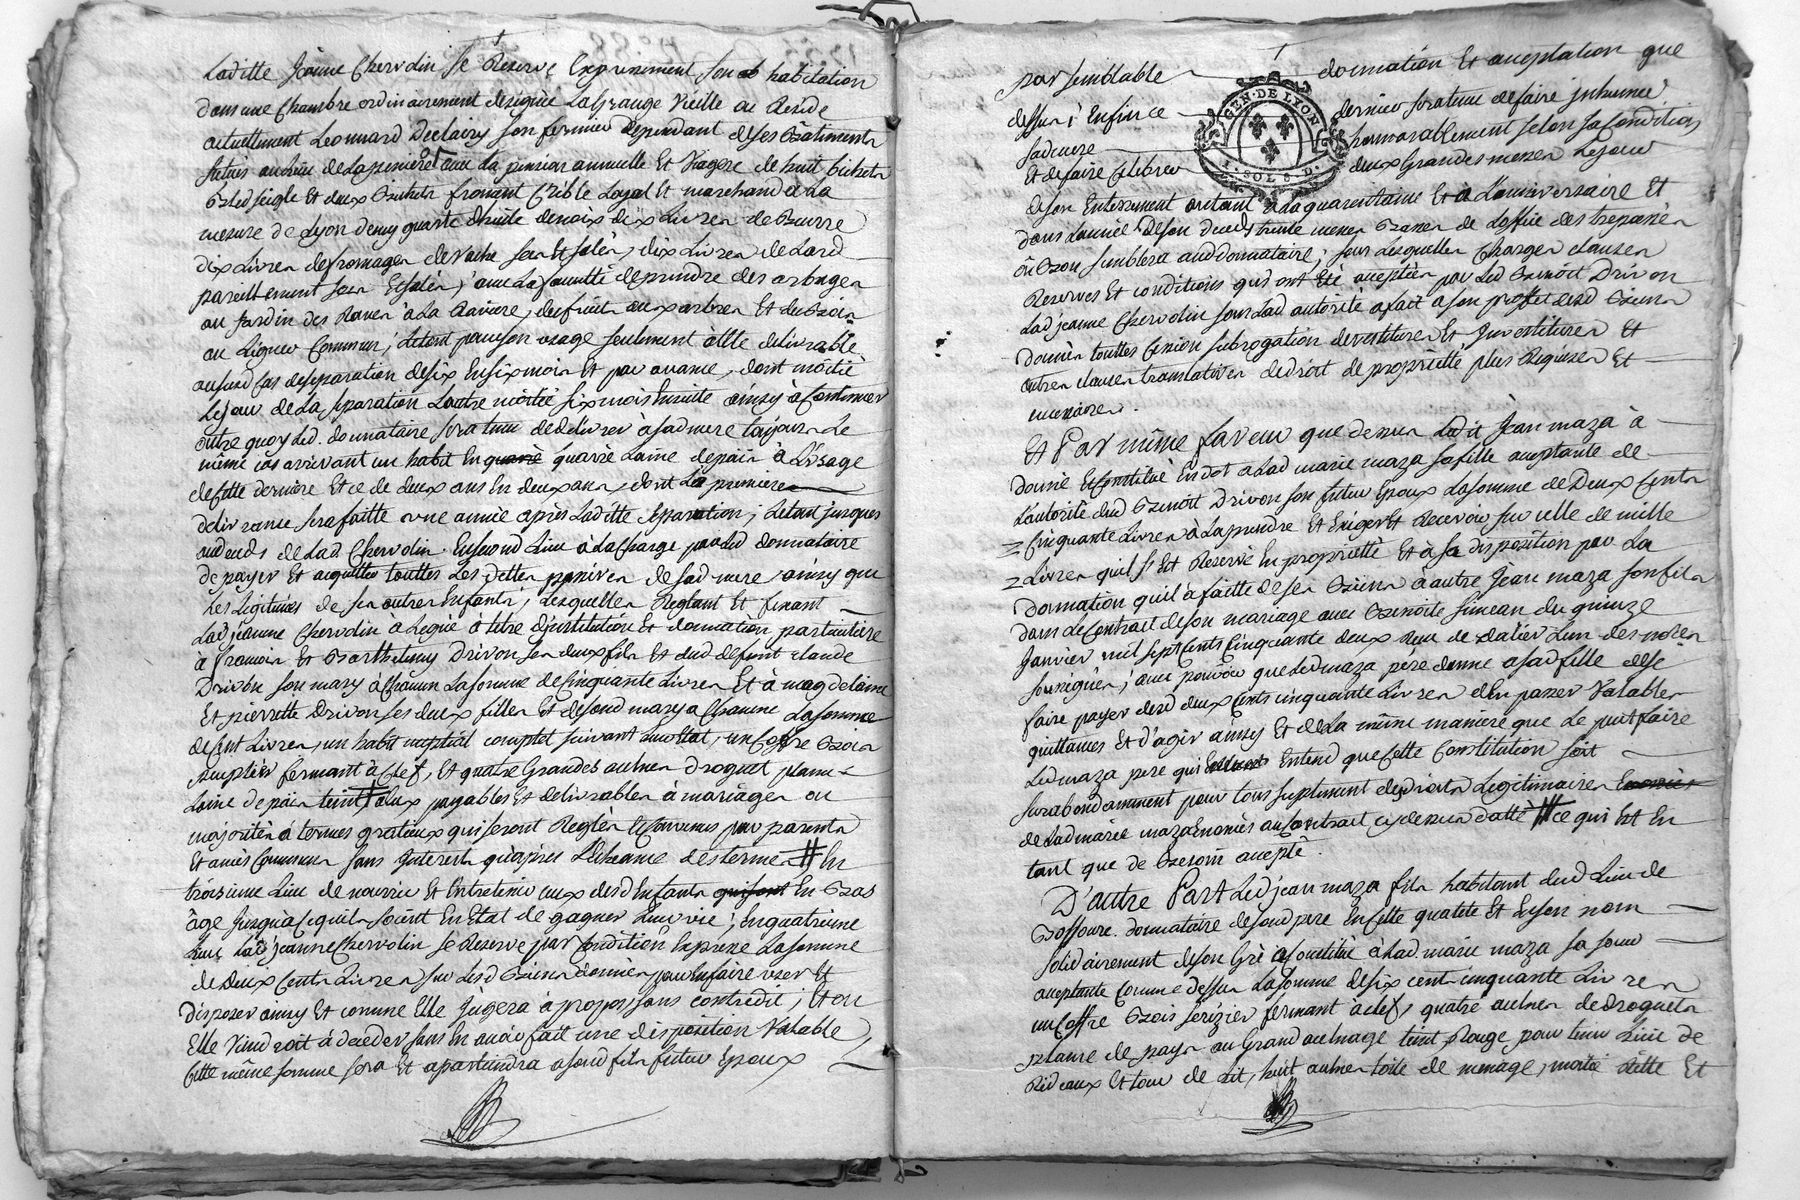 Laditte Jeanne Chervolin se Reserve Expressement son habitation
dans une Chambre ordinairement designèe La Grange Vieille ou Reside
actuellement Leonnard Declairy son fermier dependant de ses Bâtiments
scitués au Lieu de Et avec La pension annuelle Et Viagere de huit bichets
Bled seigle Et deux Bichets froment Crible Loyal Et marchand a La
mesure de Lyon demy quarte d'huile de noix dix Livres de Beurre
dix Livres de fromages de Vache secs Et salès, dix Livres de Lard
pareillement secs Et salès, avec La facultté de prendre des arbages
au Jardin des Raves à La Raviere, des fruits aux arbres Et du Bois
au Ligner Commun, Letout pour son usage seulement à Elle delivrable
audit cas de separation de six En six mois Et par avance, dont moitiè
Le jour de La separation L'autre moitiè six mois Ensuitte ainsy à Continuer
outre quoy Led. donnataire sera tenu de delivrer à sad mere toujours Le
même cas arrivant un habit En quarrè quarrè Laine de païs à L'Usage
de Cette derniere Et ce de deux ans En deux ans, dont La premiere
delivrance sera faitte une annèe après Laditte separation; Letout jusques
au deceds de Lad Chervolin. En second Lieu à La Charge par Led donnataire
de payer Et acquitter touttes Les dettes passives de sad mere ainsy que
Les Legitimes de ses autres Enfants, Lesquelles Reglant Et fixant
Lad jeanne Chervolin a Leguè à titre d'institution Et donnation particuliere
à francois Et Barthelemy Drivon ses deux fils Et dud defunt claude
Drivon son mary à Chacun La somme de Cinquante Livres Et à magdelaine
Et pierrette Drivon ses deux filles Et de sond mary a Chacune La somme
de Cent Livres, un habit nuptial complet suivant Leur Etat, un Coffre Bois
sapin fermant à Clef, Et quatre Grandes aulnes droguet plame
Laine de païs teint payables Et delivrables à mariages ou
majoritès à termes gratieux qui seront Reglès Et Convenus par parents
Et amis Communs sans Interests qu'après L'Echeance des termes # En
troisieme Lieu de nourrir Et Entretenir ceux desd Enfants qui sont En Bas
âge jusqu'à ce quils soient En Etat de gagner Leur vie; En quatrieme
Lieu Lad jeanne Chervolin se Reserve par Condition Expresse La somme
de Deux Cents Livres sur Lesd Biens donnès pour En faire user Et
Disposer ainsy Et comme Elle Jugera à propos sans contredit; Et ou
Elle Viendroit à deceder sans En avoir fait une disposition Valable
Cette même somme sera Et apartiendra a sond fils futur Epoux
par semblable donnation Et acceptation que
dessus; Enfin ce dernier sera tenu de faire inhumer
sad mere honnorablement selon sa Condition
Et de faire Celebrer deux Grandes messes Le jour
GEN. DE LYON
1. SOL 8. D.
de son Enterrement autant à La quarentaine Et à L'anniversaire Et
dans L'annèe De son deceds trente messes Basses de L'office des trepassès
où Bon semblera aud donnataire; sous Lesquelles Charges clauses
Reserves Et conditions qui ont Etè acceptèes par Led Benoît Drivon
Lad jeanne Chervolin sous Lad autorité a fait a son proffit desd Biens
donnès touttes Cession subrogation devestitures Et Investitures Et
autres clauses translatives de droit de propriettè plus Requises Et
necessaires.
Et Par même faveur que dessus Ledit Jean maza à
donnè Et Constituè En dot a Lad marie maza sa fille acceptante de
L'autorité dud Benoît Drivon son futur Epoux La somme de Deux Cents
Cinquante Livres à La prendre Et Exiger Et Recevoir sur celle de mille
Livres quil s'Est Reservè En propriettè Et à sa disposition par La
Donnation qu'il à faitte de ses Biens à autre Jean maza son fils
dans Le Contrat de son mariage avec Benoite Simean du quinze
Janvier mil sept Cents Cinquante deux Reçu de Dalier L'un des notres
soussignès; avec pouvoir que Led maza pere donne a sad fille de se
faire payer desd deux Cents cinquante Livres d'En passer Valables
quittances Et d'agir ainsy Et de La même maniere que Le peut faire
Led maza pere qui Entend que Cette Constitution soit
surabondamment pour tous suplement de droits Legitimaires
de Lad marie maza Enoncès au Contrat cy dessus datté # ce qui Est En
tant que de Besoin accepté.
D'autre Part Led jean maza fils habitant dud Lieu de
donnataire de sond pere En Cette qualité Et En son nom
solidairement de son Grè a constituè à Lad marie maza sa sœur
acceptante Comme dessus La somme de six cent cinquante Livres
un Coffre Bois Cerizier fermant à clef, quatre aulnes de droguets
plame de pays au Grand aulnage teint Rouge pour Leur Ciel de
Rideaux Et tour de Lit, huit aulnes toile de menage, moitiè Ritte Et